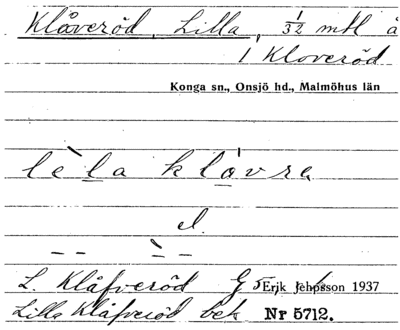 Klåveröd, Lilla, 1/32 mtl å
1 Kloveröd
Konga sn., Onsjö hd., Malmöhus län
lèla klåvra
el.
L. Klåfveröd G 5 Erik Jeppsson 1937
Lilla Klåfveröd bek Nr 5712.